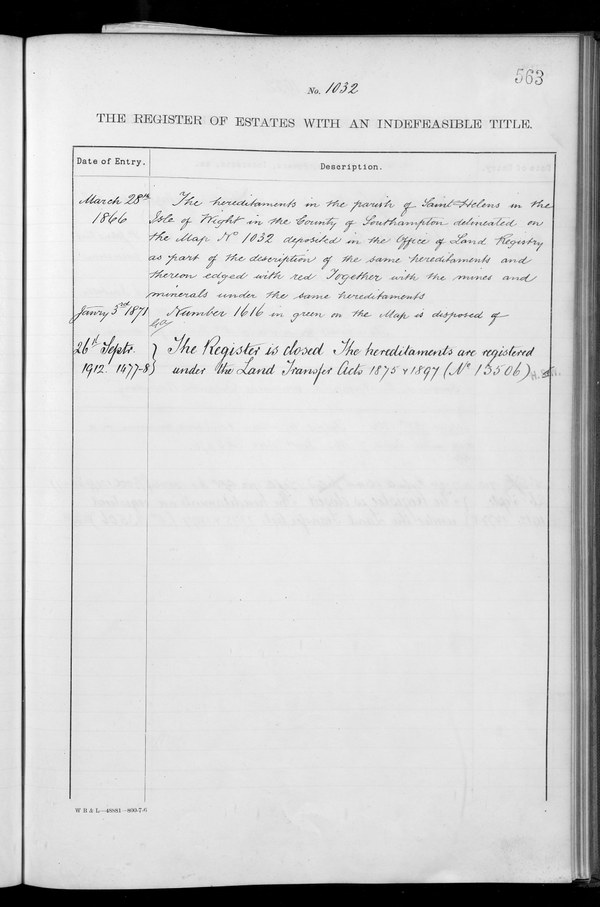 563
No. 1032
THE REGISTER OF ESTATES WITH AN INDEFEASIBLE TITLE.
Date of Entry.
Description.
March 28th The hereditaments in the parish of Saint Helens in the
1866 Isle of Wight in the County of Southampton delineated on
the Map No 1032 deposited in the Office of Land Registry
as part of the description of the same hereditaments and
thereon edged with red Together with the mines and
minerals under the same hereditaments
Janry 3rd 1871 Number 1616 in green on the Map is disposed of
26th Septr. } The Register is closed The hereditaments are registered
1912. 1477-8 } under the Land Transfer Acts 1875 & 1897 (No 13506)
W B & L—488S1—800-7-6